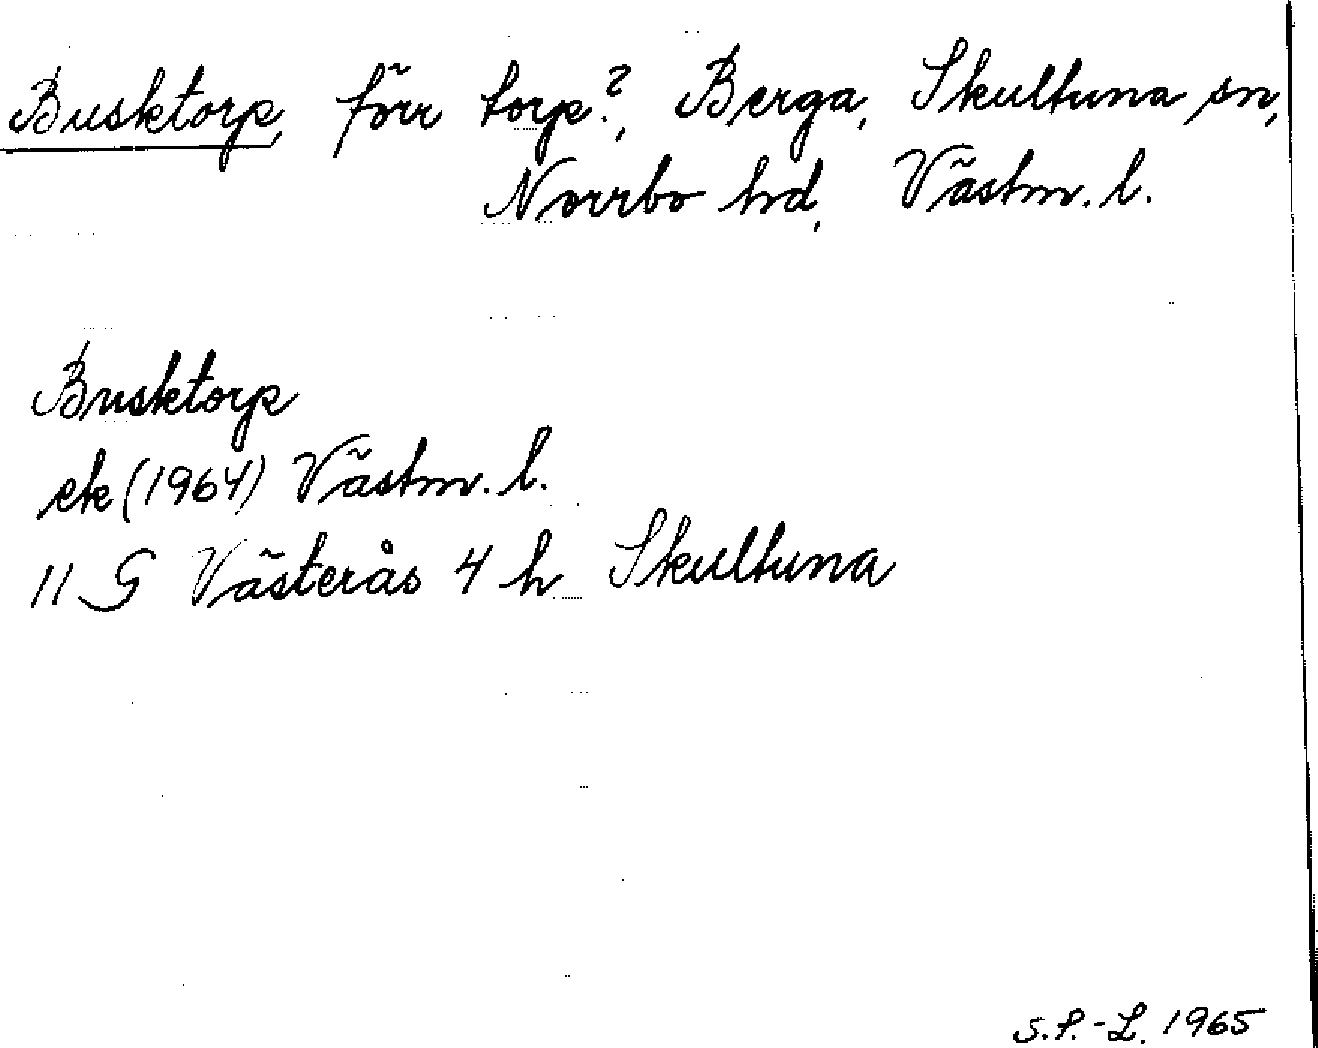 Busktorp, förr torp?, Berga, Skultuna sn,
Norrbo hd, Västm. l.
Busktorp
ek (1964) Västm. l.
11 G Västerås 4 h Skultuna
S.P.-L. 1965